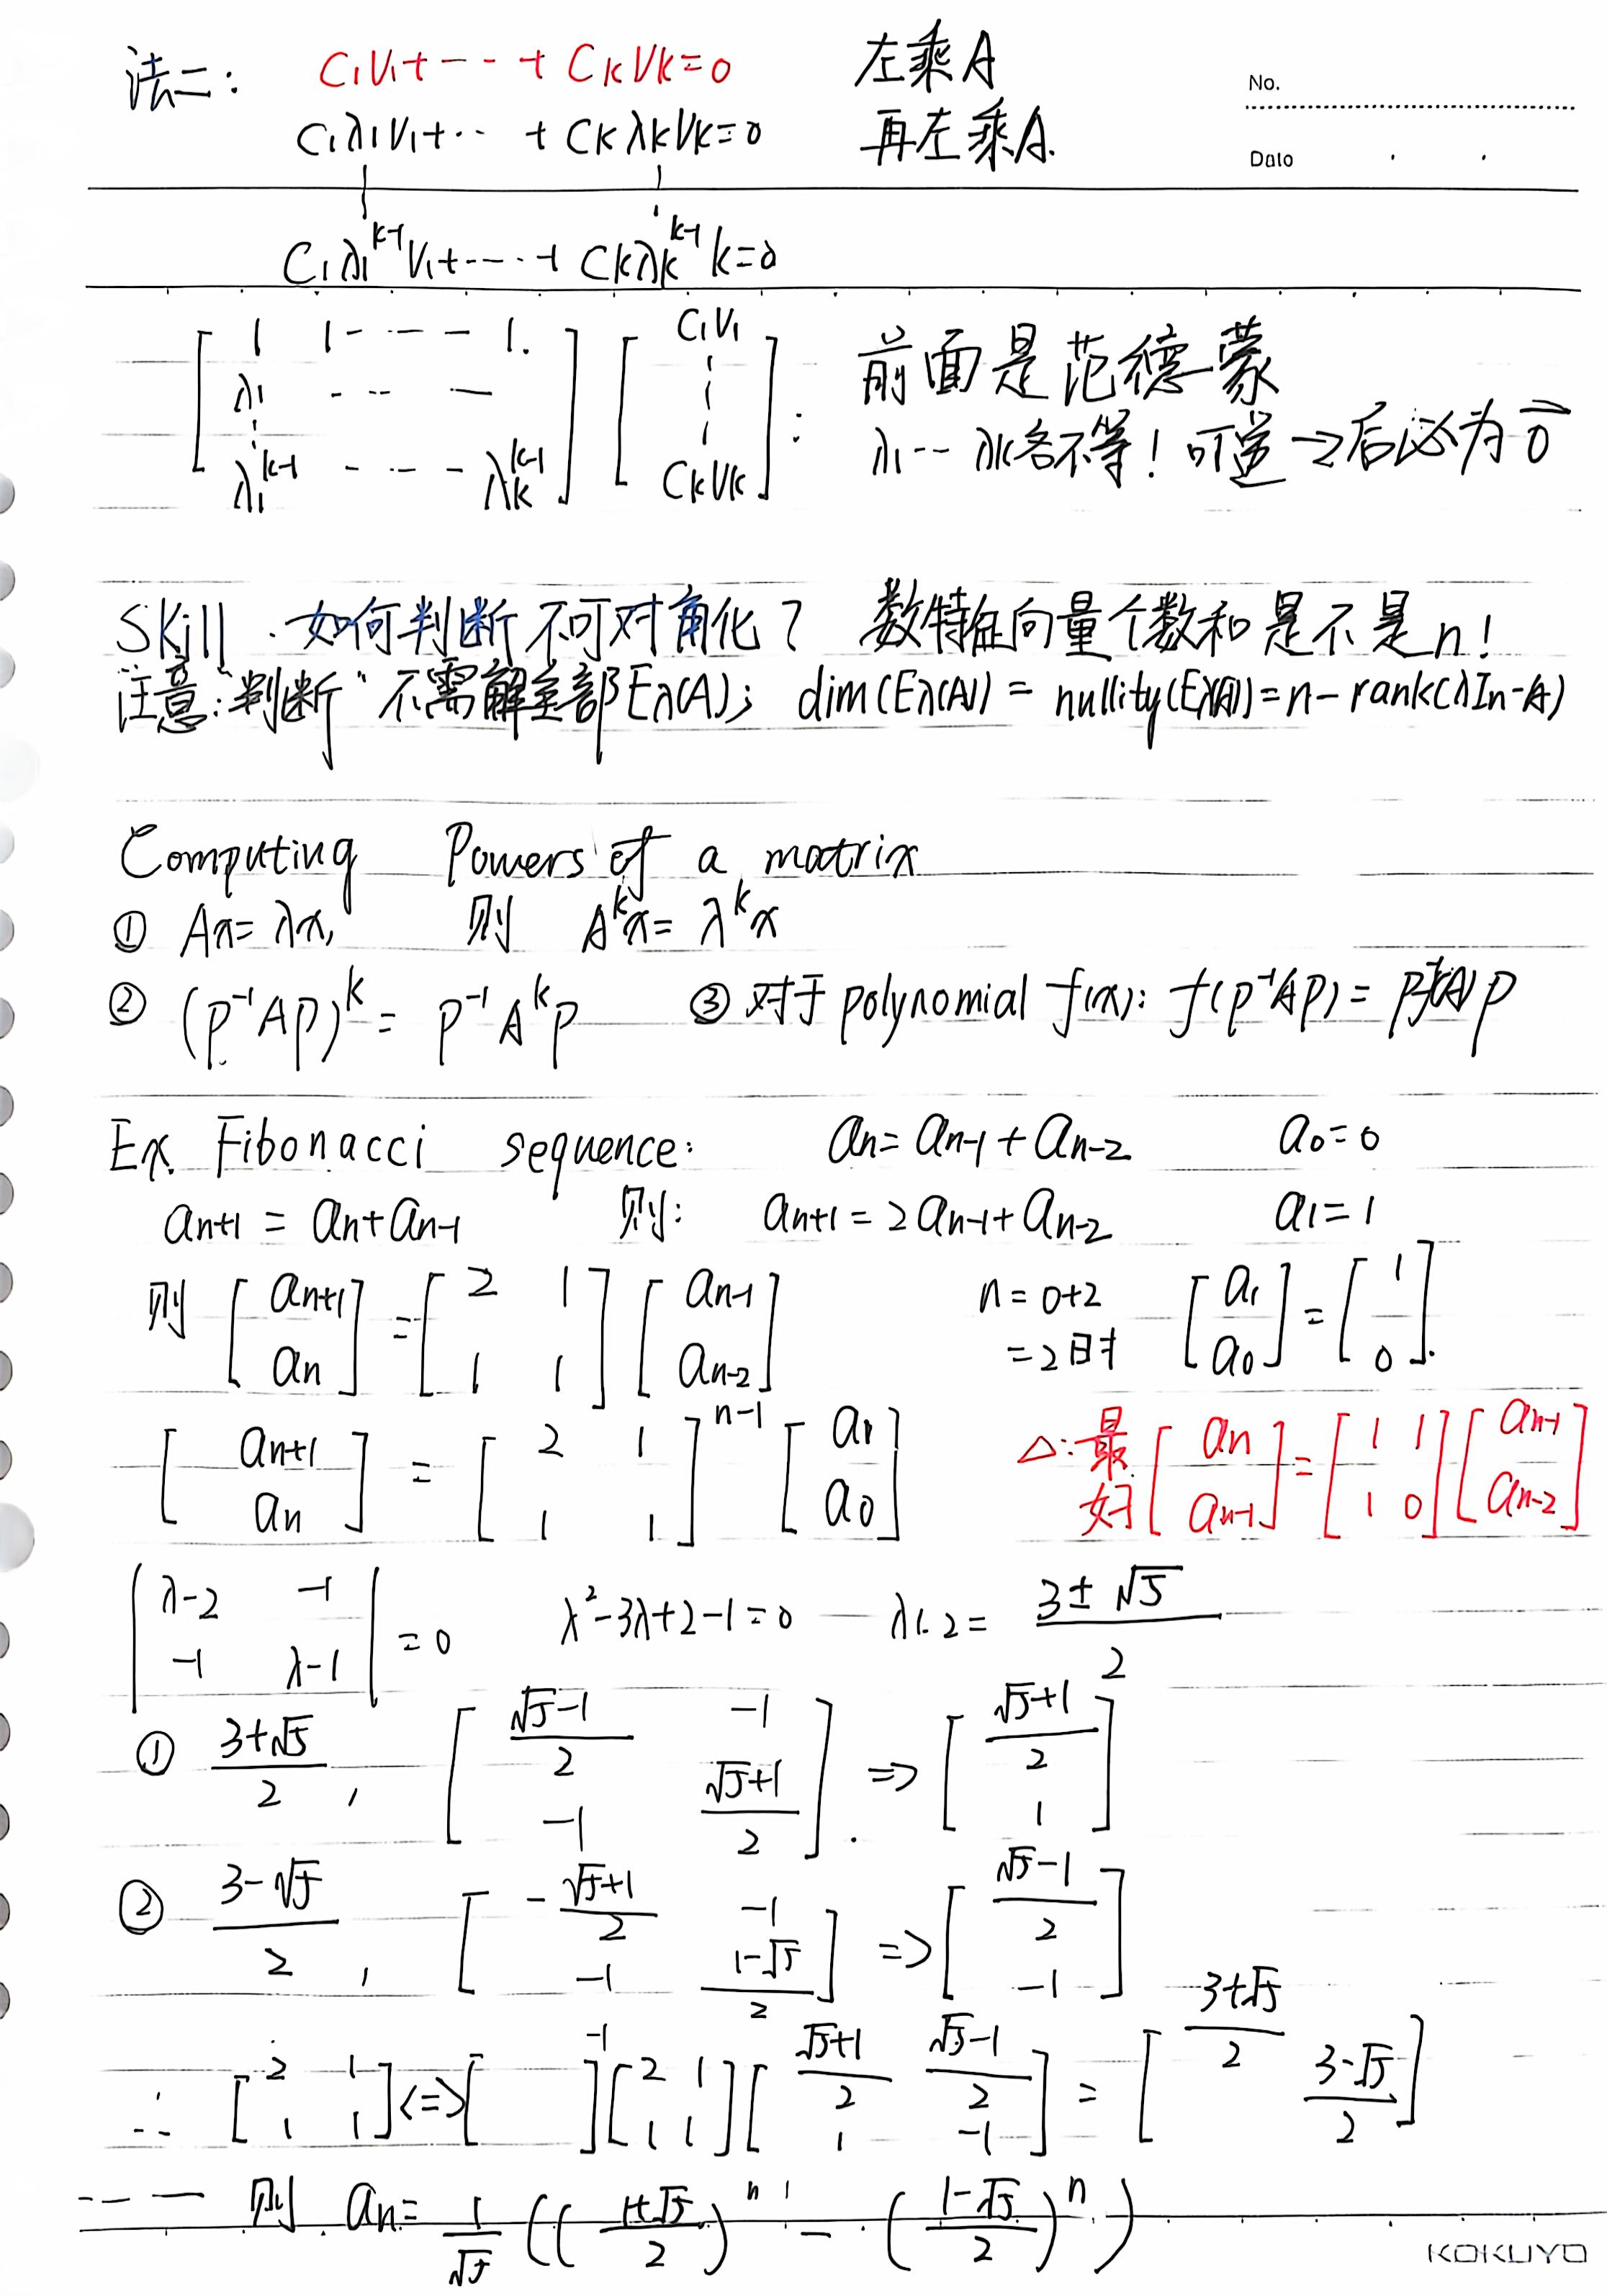 No.
Date
法二: C₁V₁+---+CₖVₖ=0 左乘A
C₁λ₁V₁+··+CₖλₖVₖ=0 再左乘A.
C₁λ₁^{k-1}V₁+----+Cₖλₖ^{k-1}k=0
[1 1---- 1. / λ₁ ---- — / ⋮ / λ₁^{k-1} ---- λₖ^{k-1}] [C₁V₁ / ⋮ / CₖVₖ]: 前面是范德蒙
λ₁--λₖ各不等! 可逆→后必为 0⃗
Skill. 如何判断不可对角化? 数特征向量个数和是不是n!
注意:"判断"不需解全部Eλ(A); dim(Eλ(A)) = nullity(Eλ(A))=n-rank(λIn-A)
Computing Powers of a matrix
① Ax=λx, 则 A^k x=λ^k x
② (P⁻¹AP)^k = P⁻¹A^kP ③ 对于polynomial f(x): f(P⁻¹AP)=P⁻¹f(A)P
Ex. Fibonacci sequence: aₙ=aₙ₋₁+aₙ₋₂ a₀=0
aₙ₊₁=aₙ+aₙ₋₁ 则: aₙ₊₁=2aₙ₋₁+aₙ₋₂ a₁=1
则 [aₙ₊₁ / aₙ]=[2 1 / 1 1][aₙ₋₁ / aₙ₋₂] n=0+2 =2时 [a₁ / a₀]=[1 / 0].
[aₙ₊₁ / aₙ] = [2 1 / 1 1]^{n-1} [a₁ / a₀] △:最好[aₙ / aₙ₋₁]=[1 1 / 1 0][aₙ₋₁ / aₙ₋₂]
|λ-2 -1 / -1 λ-1|=0 λ²-3λ+2-1=0 λ1.2=(3±√5)/2
① (3+√5)/2, [(√5-1)/2 -1 / -1 (√5+1)/2]. => [(√5+1)/2 / 1]
② (3-√5)/2, [-(√5+1)/2 -1 / -1 (1-√5)/2] => [(√5-1)/2 / -1]
∴ [2 1 / 1 1]<=>[ ]⁻¹[2 1 / 1 1][(√5+1)/2 (√5-1)/2 / 1 -1] = [(3+√5)/2 / (3-√5)/2]
---— 则 aₙ=1/√5 (((1+√5)/2)^n - ((1-√5)/2)^n)
KOKUYO